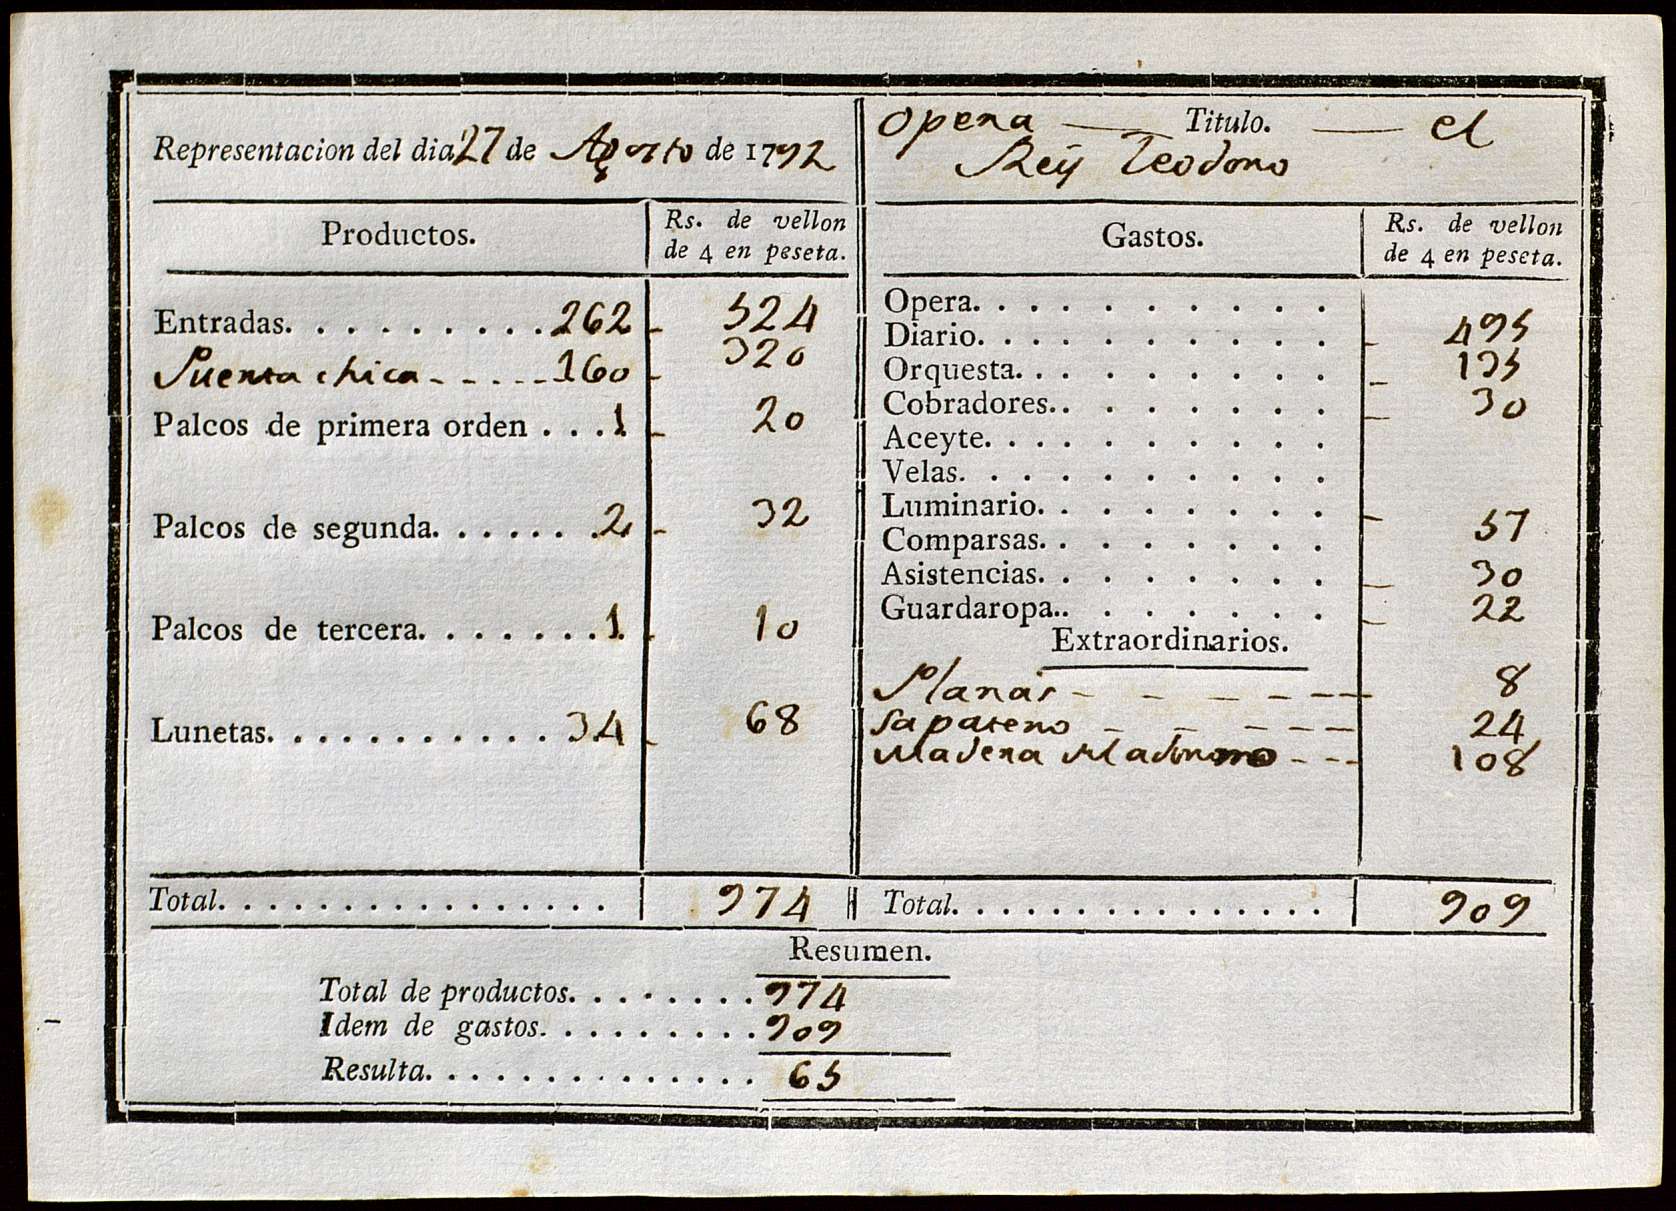 Representacion del dia 27 de Agosto de 1792
Opera — Titulo. — el
Rey Teodoro
Productos. Rs. de vellon de 4 en peseta.
Entradas. . . . . . . . . . 262 - 524
Puerta chica - - - - - 160 - 320
Palcos de primera orden . . . 1 - 20
Palcos de segunda. . . . . . . 2 - 32
Palcos de tercera. . . . . . . 1 - 10
Lunetas. . . . . . . . . . . . 34 - 68
Total. . . . . . . . . . . . . . . . 974
Gastos. Rs. de vellon de 4 en peseta.
Opera. . . . . . . . . .
Diario. . . . . . . . . . - 495
Orquesta. . . . . . . . . - 135
Cobradores.. . . . . . . - 30
Aceyte. . . . . . . . . .
Velas. . . . . . . . . .
Luminario. . . . . . . . - 57
Comparsas. . . . . . . .
Asistencias. . . . . . . . - 30
Guardaropa.. . . . . . . - 22
Extraordinarios.
Planas - - - - - - 8
Sapatero - - - - - - 24
Madera - - - 108
Total. . . . . . . . . . . . . . . . 909
Resumen.
Total de productos. . . . . . . . . 974
Idem de gastos. . . . . . . . . . 909
Resulta. . . . . . . . . . . . . . 65